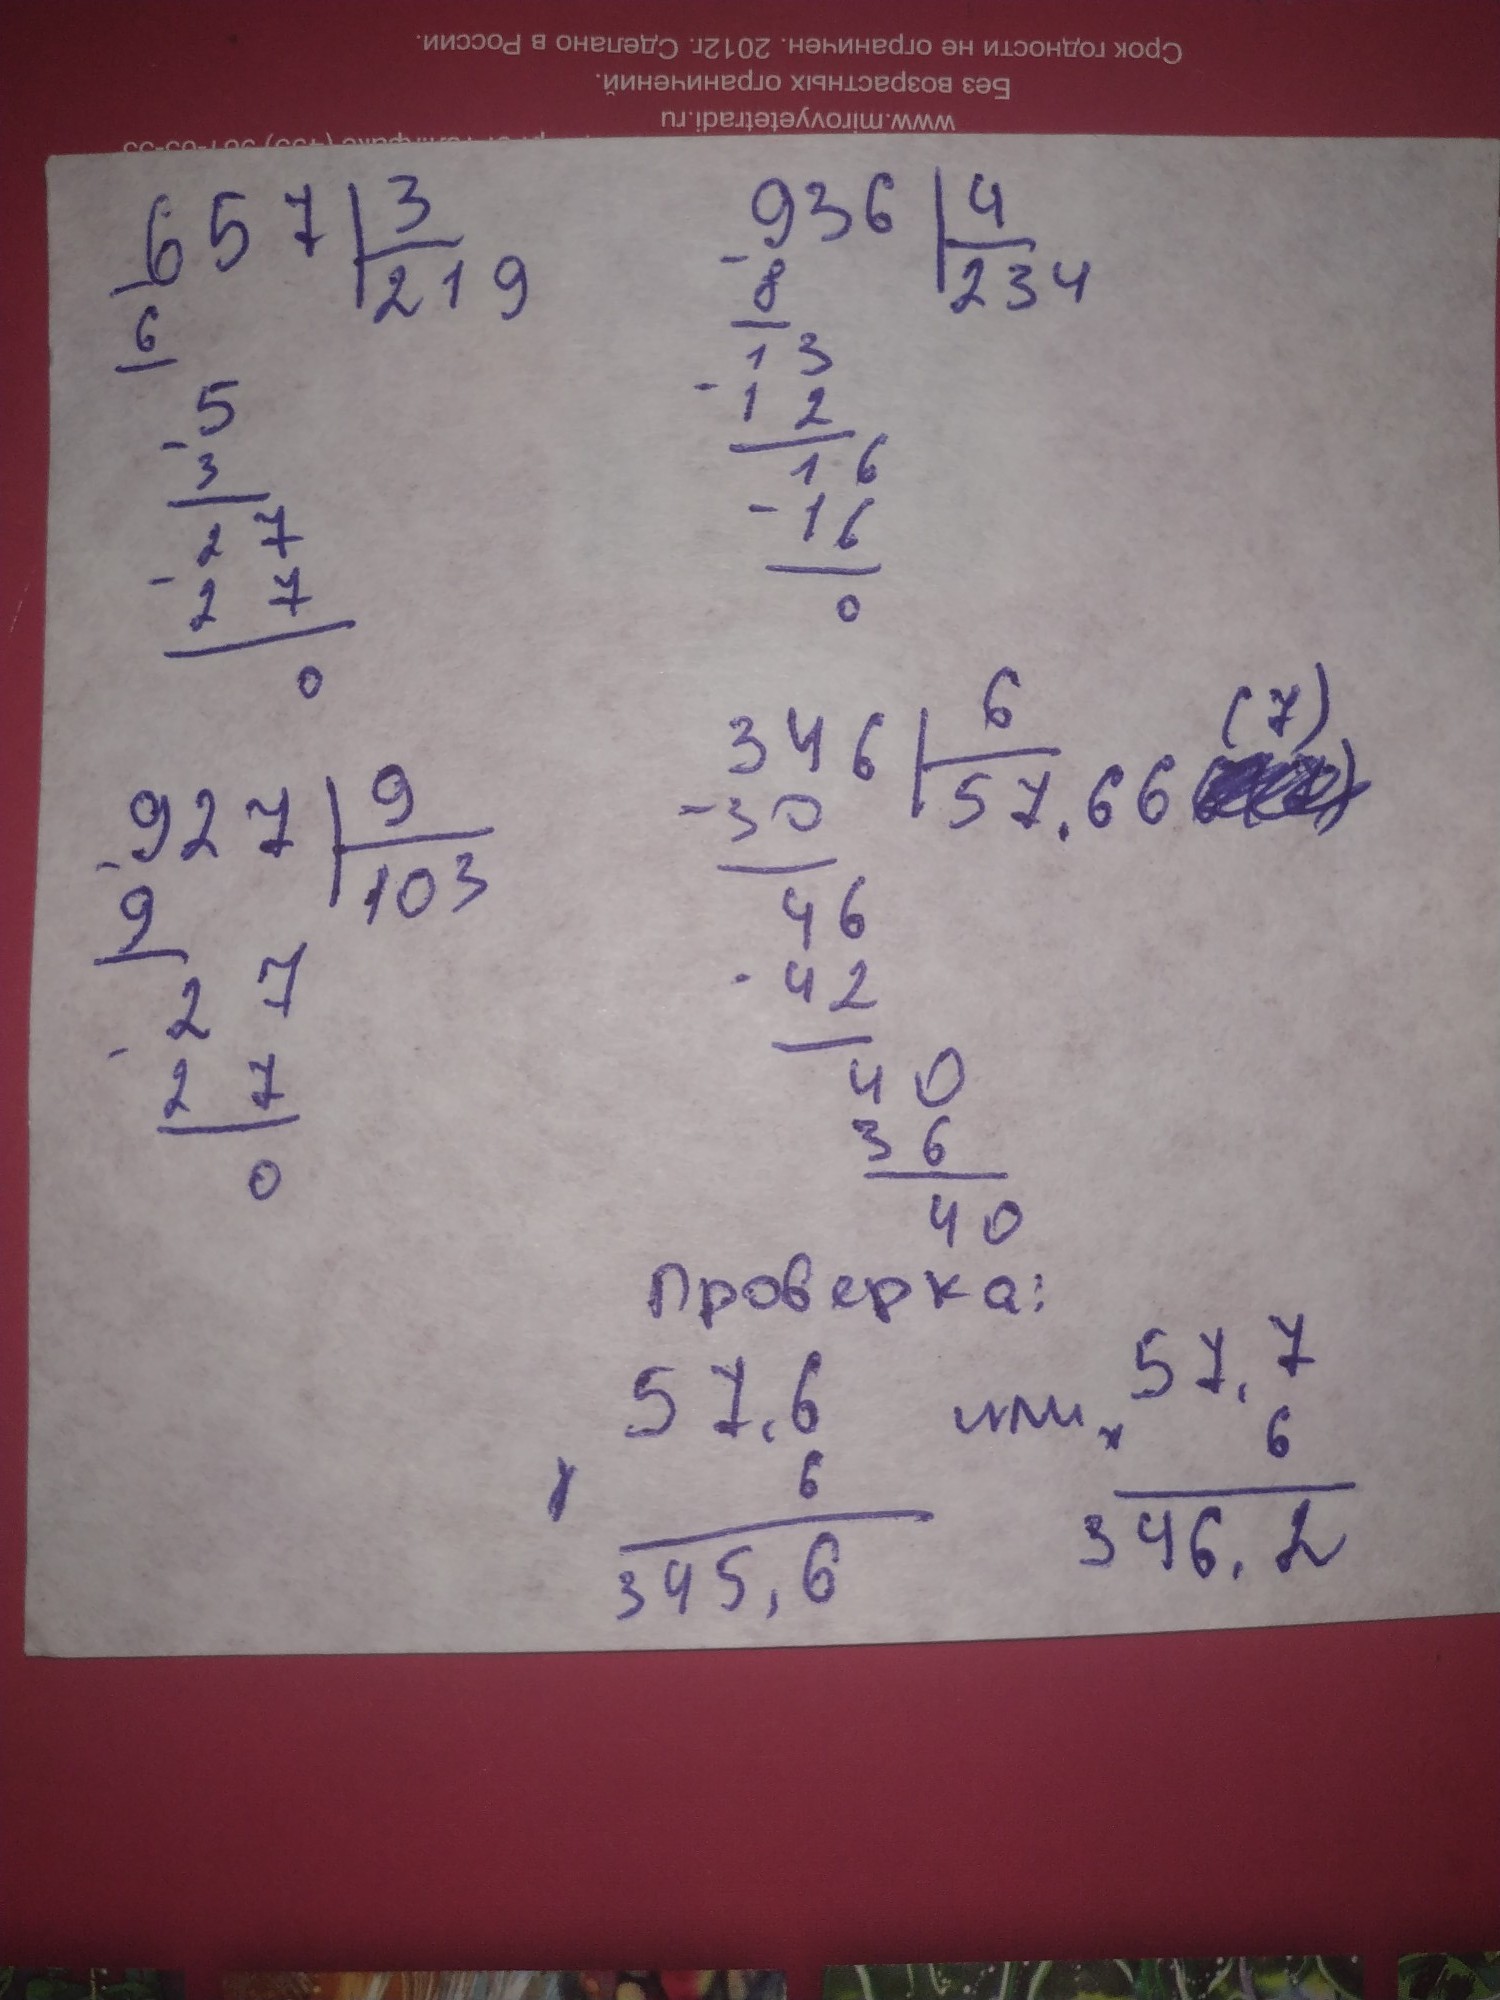 Срок годности не ограничен. 2012г. Сделано в России.
Без возрастных ограничений.
www.mirovyetetradi.ru
657 3
219
6
5
- 3
27
- 27
0
936 4
- 234
8
13
- 12
16
- 16
0
927 9
- 103
9
27
- 27
0
346 6 (7)
- 30 57,66
46
- 42
40
36
40
Проверка:
57,6
x 6
345,6
или
57,7
x 6
346,2